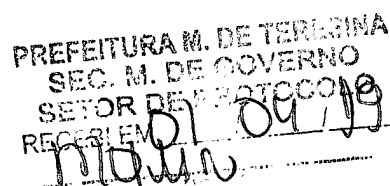 PREFEITURA M. DE TERESINA
SEC. M. DE GOVERNO
SETOR DE PROTOCOLO
RECEBI EM 01 04 19